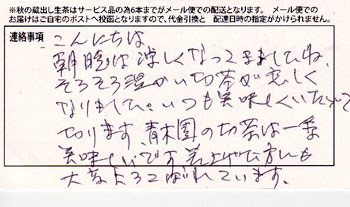 ※秋の蔵出し生茶はサービス品の為6本までがメール便での配送となります。 メール便での
お届けはご自宅のポストへ投函となりますので、代金引換と 配達日時の指定がかけられません。
連絡事項
こんにちは
朝晩は涼しくなってきましたね
そろそろ温かい切茶が美しく
なりました。いつも美味しくいただいて
切ります。青木園の切茶は一番
美味しいです 差上げた方にも
大変よろこばれています。